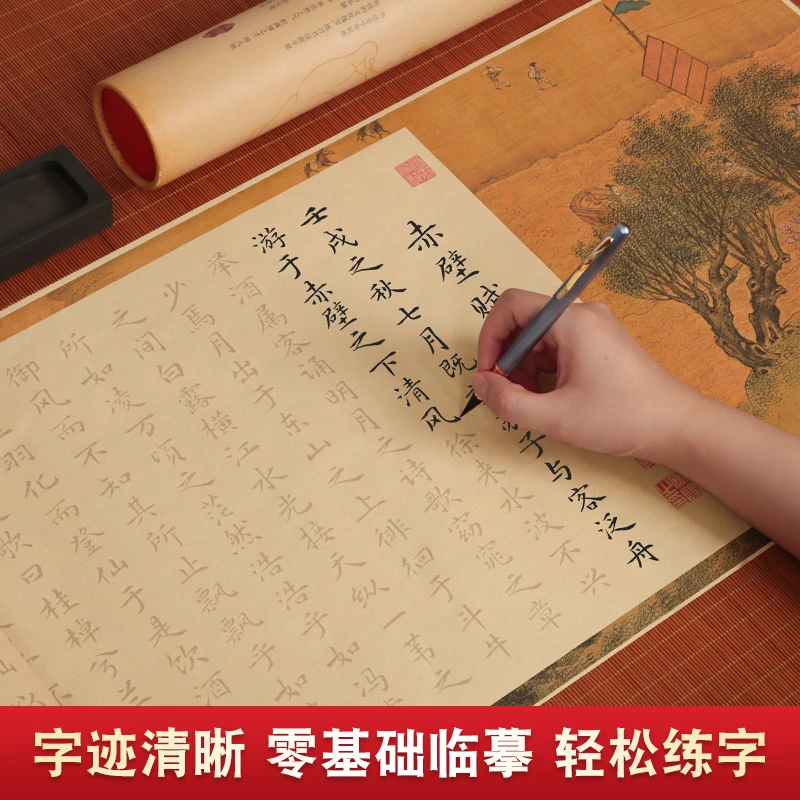 赤壁赋
壬戌之秋七月既
子与客泛舟
游于赤壁之下清风徐来水波不兴
举酒属客诵明月之诗歌窈窕之章
少焉月出于东山之上徘徊于斗牛
之间白露横江水光接天纵一苇之
所如凌万顷之茫然浩浩乎如冯
御风而不知其所止飘飘乎如
羽化而登仙于是饮酒
歌曰桂棹兮兰
字迹清晰 零基础临摹 轻松练字